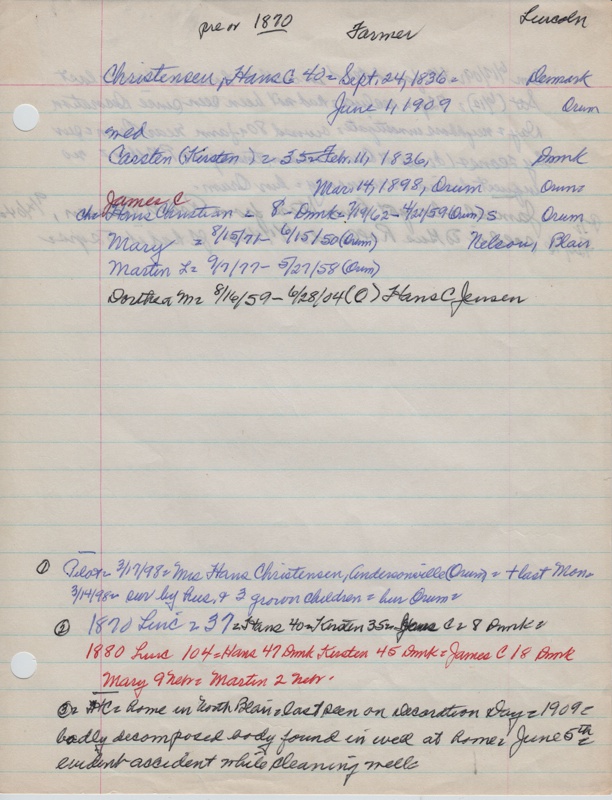 pre or 1870 Farmer Lincoln
Christensen, Hans C 40 = Sept. 24, 1836 = Denmark
June 1, 1909 Orum
md
Carsten (Kirsten) = 35 = Feb. 11, 1836, Dnmk
Mar. 14, 1898, Orum Orum
James C
ch = Hans Christian = 8 - Dnmk = 7/19/62 - 4/21/59 (Orum) S Orum
Mary = 8/15/71 - 6/15/50 (Orum) Nelson, Blair
Martin L = 9/7/77 - 5/27/58 (Orum)
Dorthea M = 8/16/59 - 6/28/04 (O) Hans C Jensen
① Pilot = 3/17/98 = Mrs Hans Christensen, Andersonville (Orum) = + last Mon =
3/14/98 = sur by hus, & 3 grown children = bur Orum =
② 1870 Linc = 37 = Hans 40 = Kirsten 35 = C = 8 Dnmk =
1880 Linc 104 = Hans 47 Dnmk Kirsten 45 Dnmk = James C 18 Dnmk
Mary 9 Nebr = Martin 2 Nebr.
③ = HC = home in North Blair = last seen on Decoration Day = 1909 =
badly decomposed body found in well at home = June 5th =
evident accident while cleaning well =